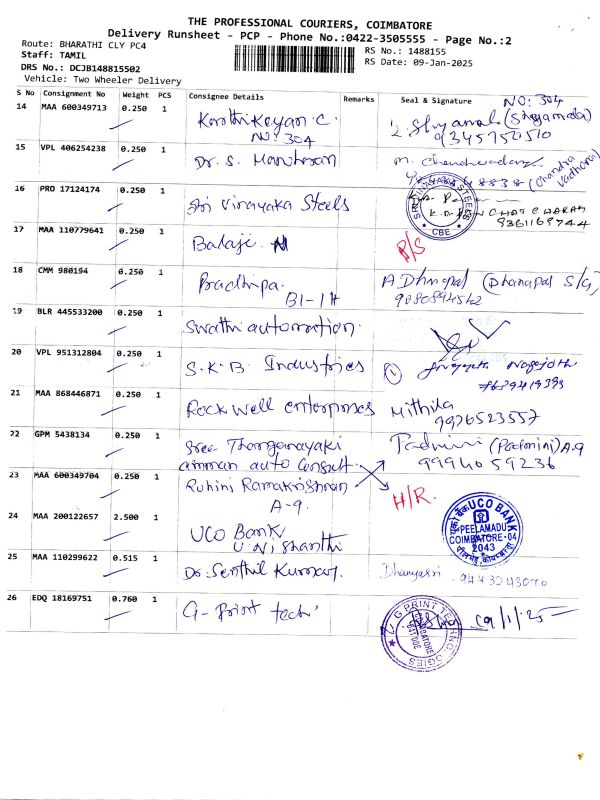 THE PROFESSIONAL COURIERS, COIMBATORE
Delivery Runsheet - PCP - Phone No.:0422-3505555 - Page No.:2
Route: BHARATHI CLY PC4
RS No.: 1488155
Staff: TAMIL
RS Date: 09-Jan-2025
DRS No.: DCJB148815502
Vehicle: Two Wheeler Delivery
S No Consignment No Weight PCS Consignee Details Remarks Seal & Signature
NO: 304
14 MAA 600349713 0.250 1 Karthikeyan C. Shyamala (Shyamala)
NO: 304 9345750510
15 VPL 406254238 0.250 1 Dr. S. (Chandra
16 PRO 17124174 0.250 1 Sri Vinayaka Steels
SRI VINAYAKA STEELS
CBE
9361168744
17 MAA 110779641 0.250 1 Balaji. N R/S
18 CMM 980194 0.250 1 Pradhipa. A Dhanapal (Dhanapal S/G)
B1-1H
19 BLR 445533200 0.250 1 Swathi automation.
20 VPL 951312804 0.250 1 S.K.B. Industries
21 MAA 868446871 0.250 1 Rockwell enterprises Mithila
9976523557
22 GPM 5438134 0.250 1 Sree Thanganayaki Padmini (Padmini) A-9
amman auto consult 9994059236
23 MAA 600349704 0.250 1 Ruhini Ramakrishnan H/R.
A-9.
24 MAA 200122657 2.500 1 UCO Bank
U.N. Shanthi
UCO BANK
PEELAMADU
COIMBATORE-04
2043
25 MAA 110299622 0.515 1 Dr. Senthil Kumar. 9443243070
26 EDQ 18169751 0.760 1 G-Print tech. 09/1/25
G PRINT TECHNOLOGIES